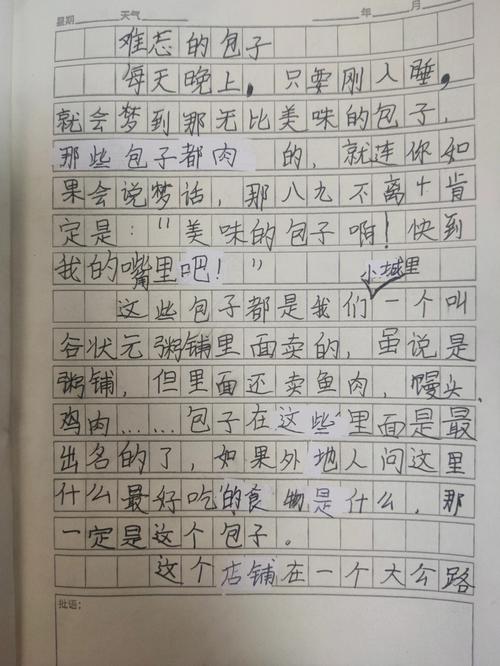 星期 天气 年 月
难忘的包子
每天晚上，只要刚入睡，
就会梦到那无比美味的包子，
那些包子都肉的，就连你如
果会说梦话，那八九不离十肯
定是："美味的包子啊！快到
我的嘴里吧！"
小城里
这些包子都是我们一个叫
谷状元粥铺里面卖的，虽说是
粥铺，但里面还卖鱼肉，馒头
鸡肉……包子在这些里面是最
出名的了，如果外地人问这里
什么最好吃的食物是什么，那
一定是这个包子。
这个店铺在一个大公路
批语：